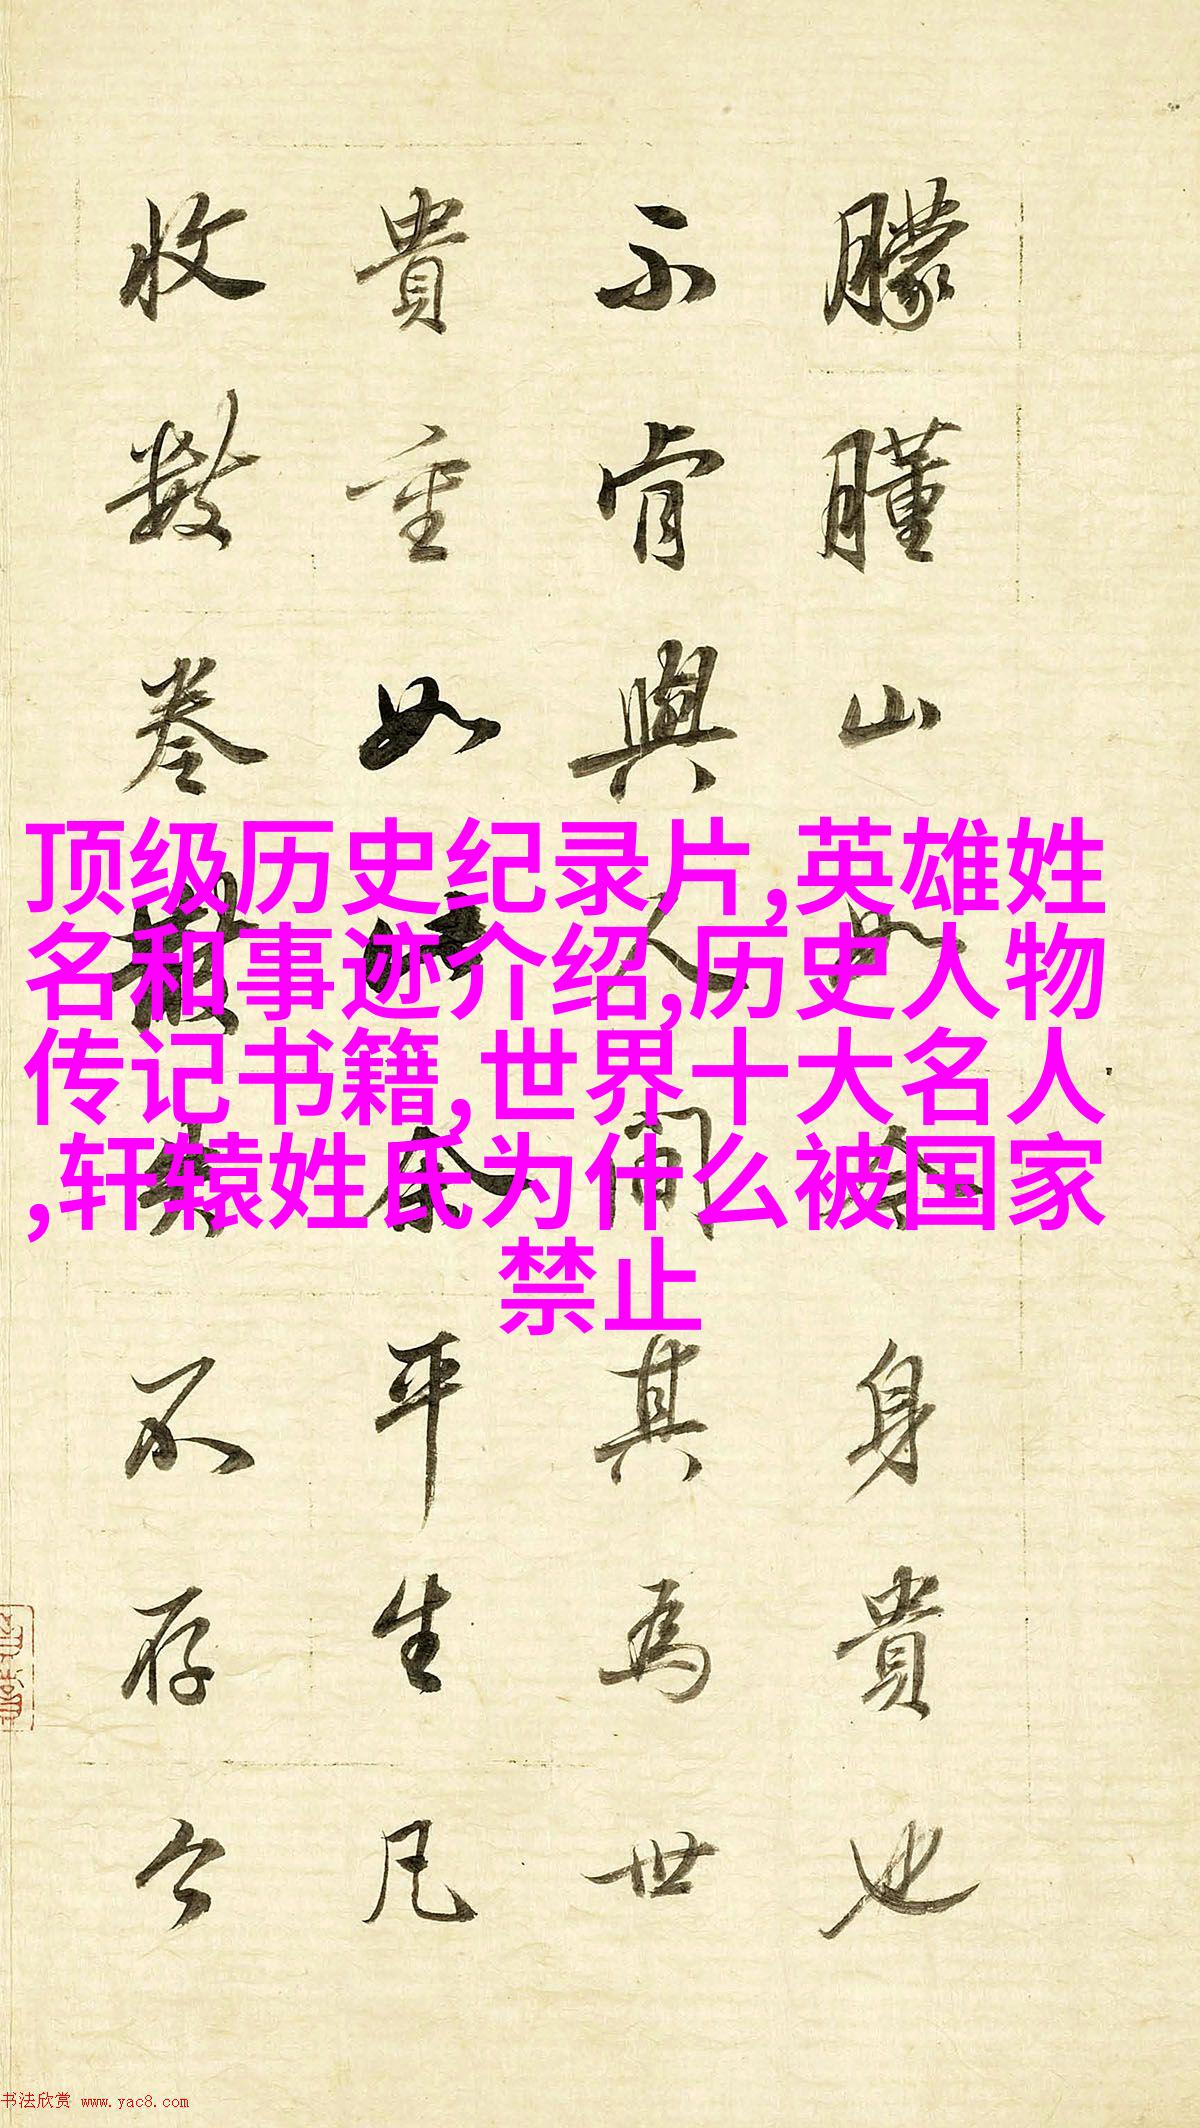 朦朣山
身貴也
不肯與人間其為世
貴重如
余平生凡
收數卷
不存今
顶级历史纪录片,英雄姓
名和事迹介绍,历史人物
传记书籍,世界十大名人
,轩辕姓氏为什么被国家
禁止
书法欣赏 www.yac8.com